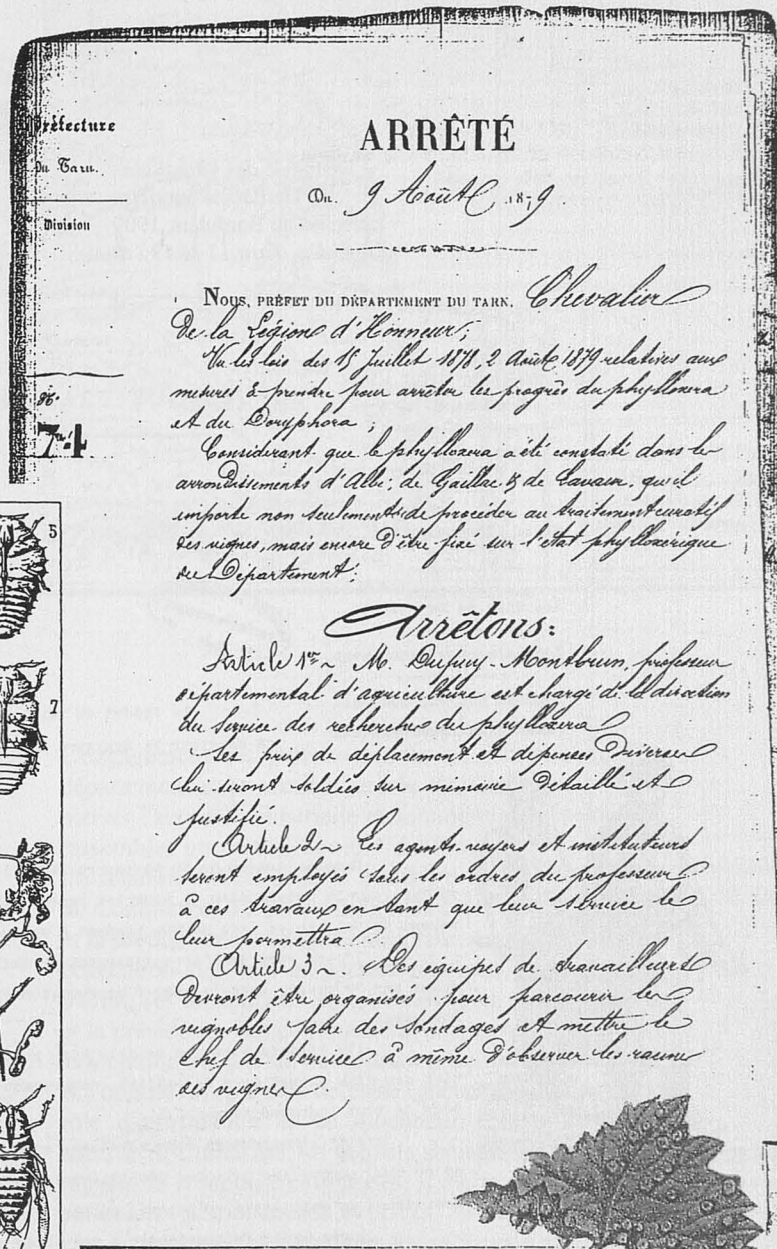 Préfecture
du Tarn.
Division
N°
7u4
ARRÊTÉ
Du 9 Août 1879
NOUS, PRÉFET DU DÉPARTEMENT DU TARN, Chevalier
De la Légion d'Honneur;
Vu les lois des 15 Juillet 1878, 2 Août 1879 relatives aux
mesures à prendre pour arrêter les progrès du phylloxera
et du Doryphora;
Considérant que le phylloxera a été constaté dans les
arrondissements d'Albi, de Gaillac & de Lavaur, qu'il
importe non seulement de procéder au traitement curatif
des vignes, mais encore d'être fixé sur l'état phylloxérique
du Département;
Arrêtons:
Article 1er ~ M. Dupuy-Montbrun, professeur
départemental d'agriculture est chargé de la direction
du Service des recherches du phylloxera
Ses frais de déplacement et dépenses diverses
lui seront soldées sur mémoire détaillé et
justifié
Article 2 ~ Les agents-voyers et instituteurs
seront employés sous les ordres du professeur
à ces travaux en tant que leur service le
leur permettra.
Article 3 ~. Des équipes de travailleurs
devront être organisés pour parcourir les
vignobles faire des sondages et mettre le
Chef de Service à même d'observer les racines
des vignes.
5
7